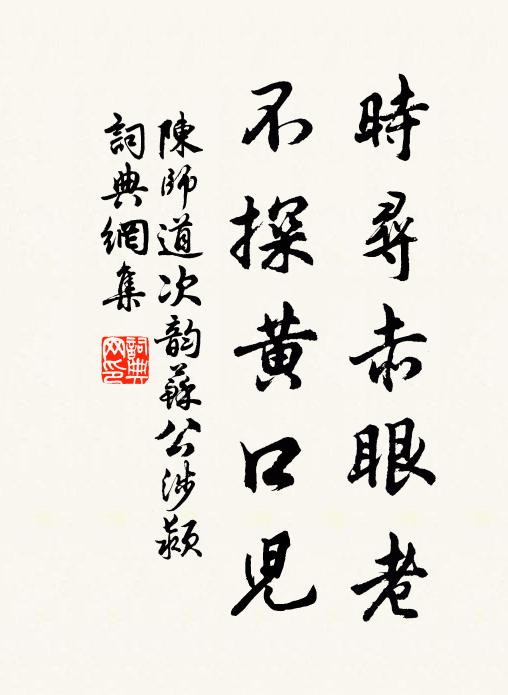 時尋赤眼老
不探黃口兒
陳師道次韵蘇公涉潁
詞典網集
詞典網印